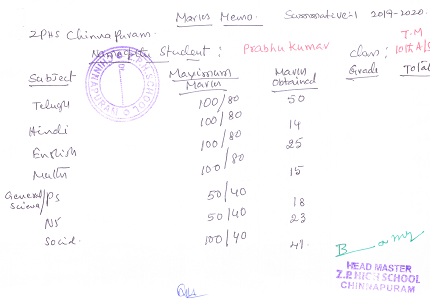 Marks Memo. Summative-1 2019-2020.
ZPHS Chinnapuram.
Name of the Student : Prabhu Kumar class : T.M 10th A/S
Subject Maximum Marks Marks Obtained Grade Total
Telugu 100/80 50
Hindi 100/80 14
English 100/80 25
Maths 100/80 15
General Science/PS 50/40 18
NS 50/40 23
Social. 100/40 41.
HEAD MASTER
Z.P. HIGH SCHOOL
CHINNAPURAM